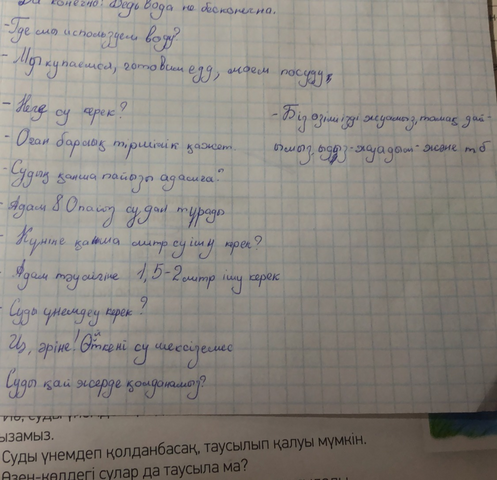 Да конечно! Ведь вода не бесконечна.
- Где мы используем воду?
- Мы купаемся, готовим еду, моем посуду
- Неге су керек?
- Оған барлық тіршілік қажет.
- Судың қанша пайызы адамға?
- Адам 80 пайыз судан тұрады
- Күніне қанша литр су ішу керек?
- Адам тәулігіне 1,5-2 литр ішу керек
- Суды үнемдеу керек?
Иә, әрине! Өйткені су шексіз емес
Суды қай жерде қолданамыз?
- Біз өзімізді жуамыз, тамақ дай-
ымыз, ыдыс жуадым және т б
ызамыз.
Суды үнемдеп қолданбасақ, таусылып қалуы мүмкін.
Өзен-көлдегі сулар да таусыла ма?